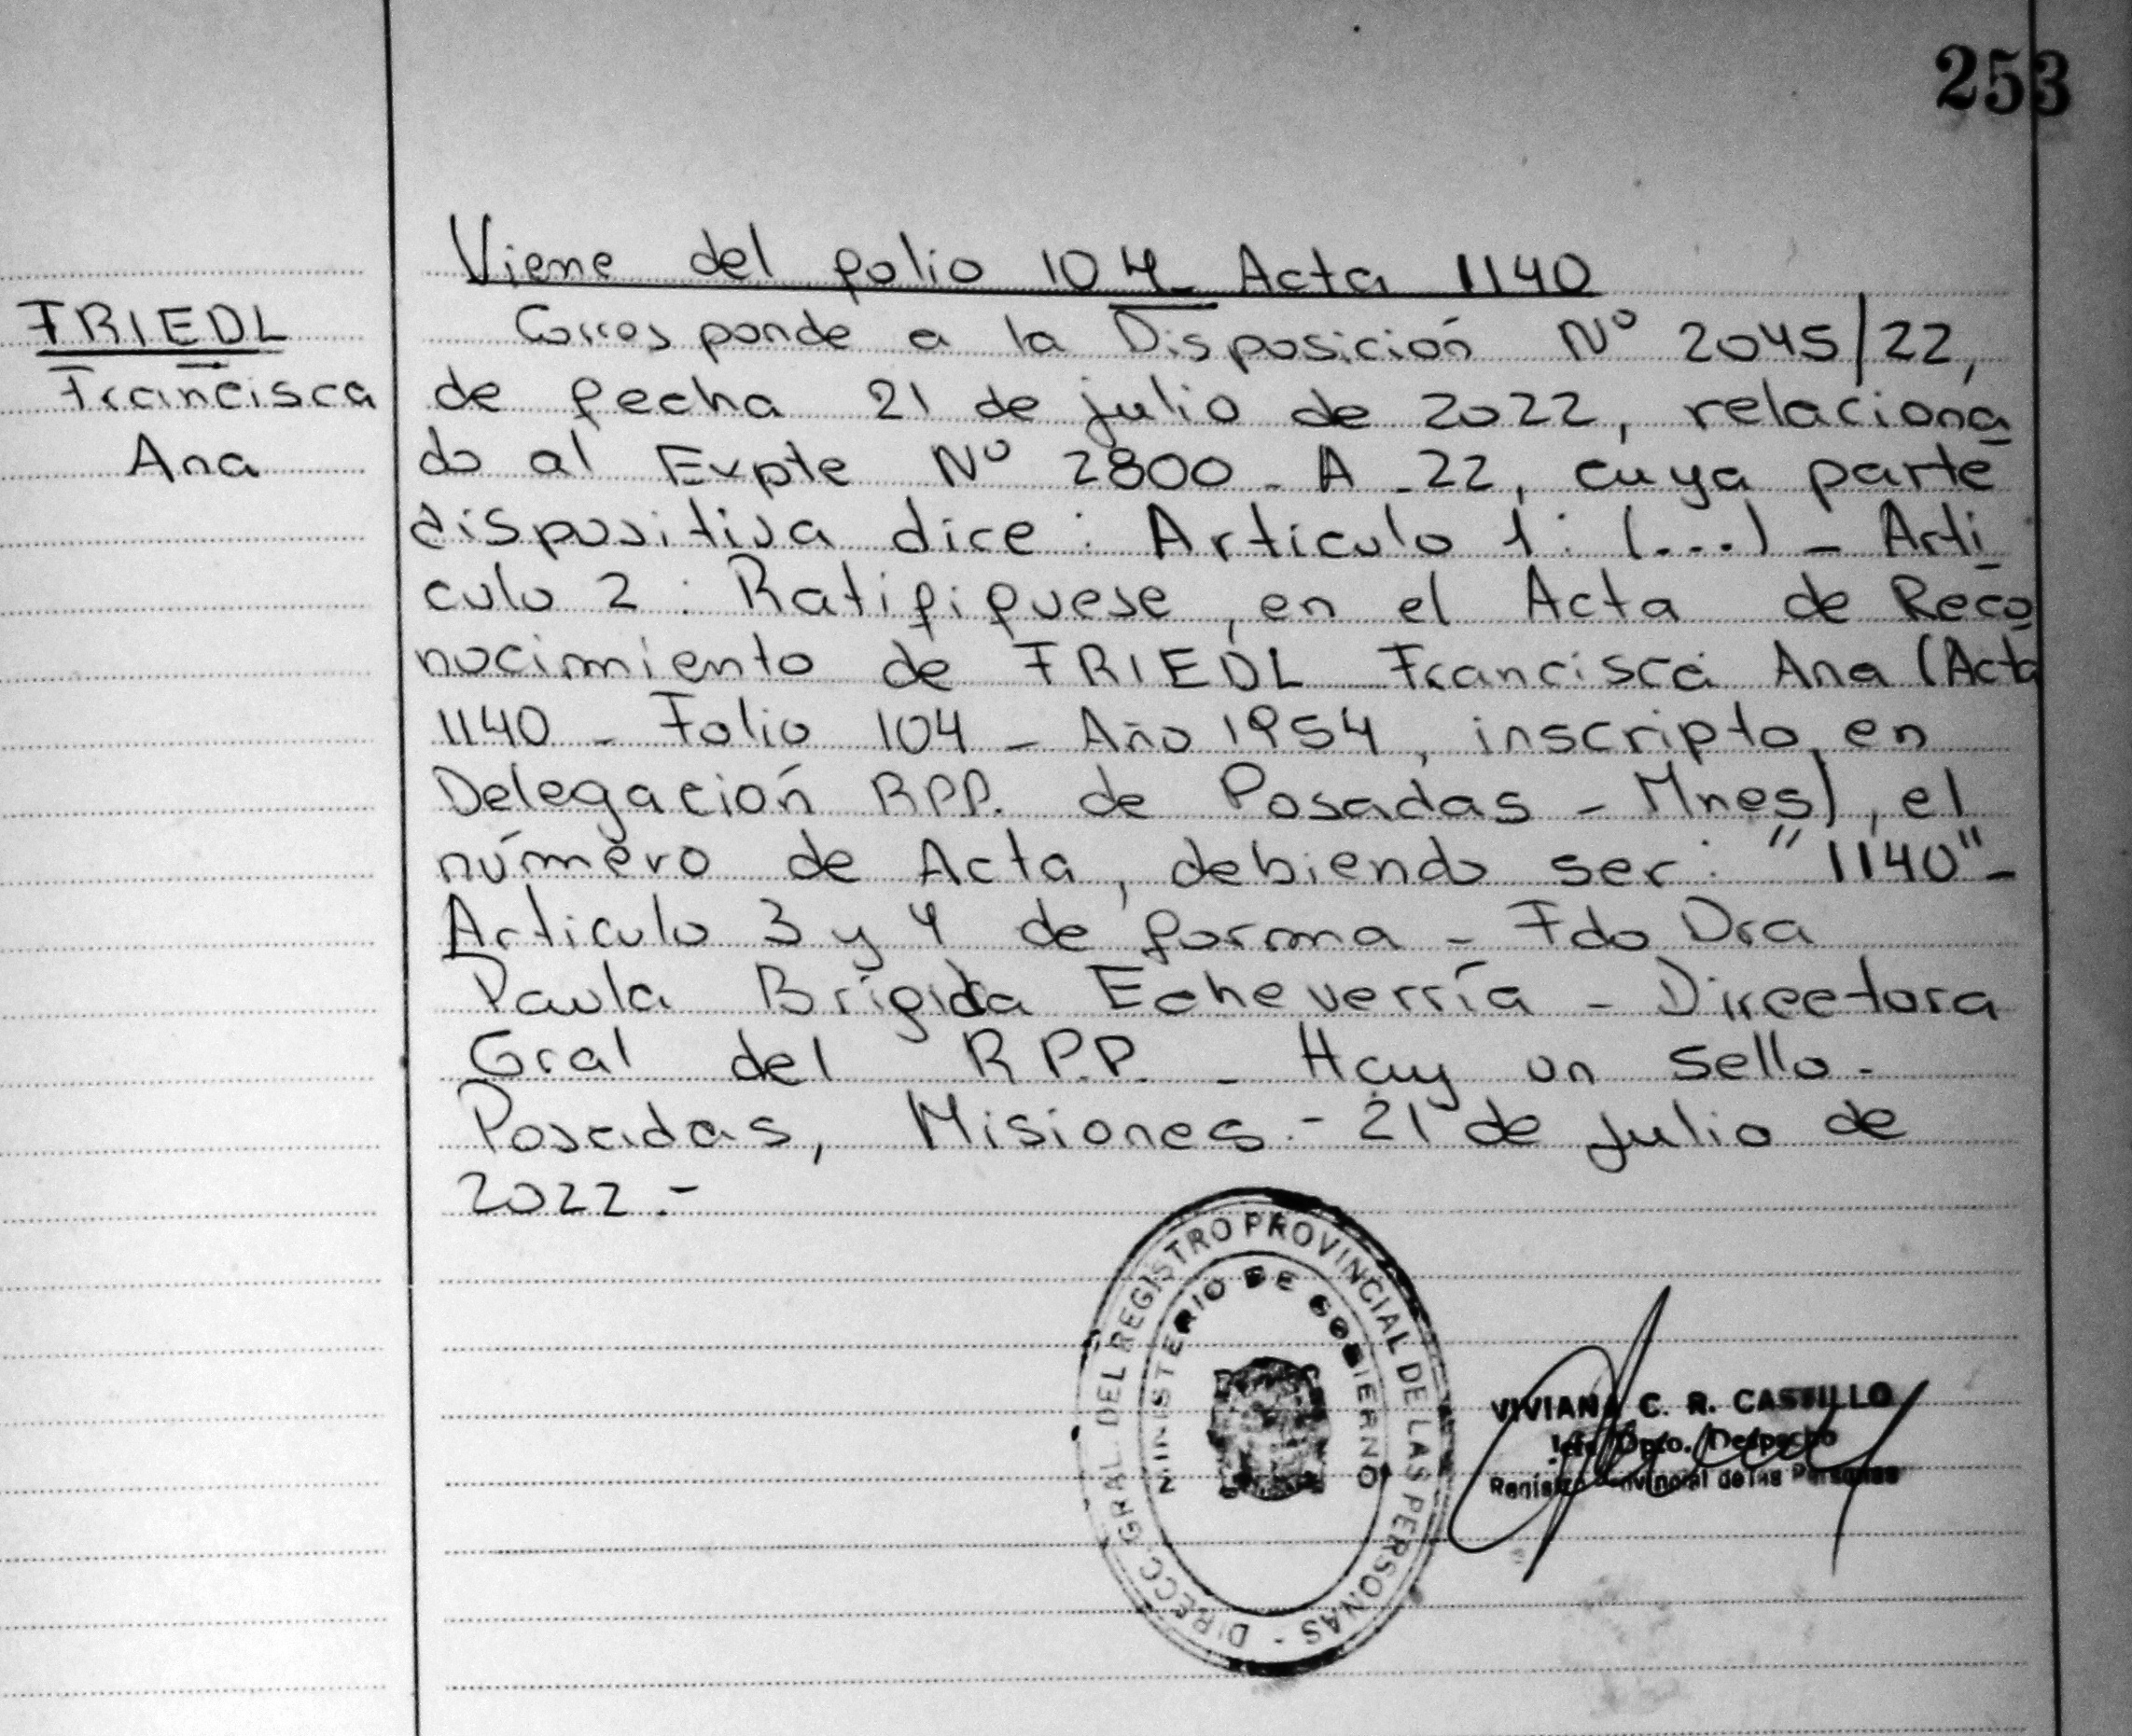 253
Viene del folio 104 - Acta 1140
FRIEDL
Francisca
Ana
Corresponde a la Disposición Nº 2045/22,
de fecha 21 de julio de 2022, relaciona
do al Expte Nº 2800 - A - 22, cuya parte
dispositiva dice: Articulo 1: (...) - Arti
culo 2: Ratifiquese, en el Acta de Reco
nocimiento de FRIEDL Francisca Ana (Acta
1140 - Folio 104 - Año 1954, inscripto en
Delegación RPP. de Posadas - Mnes), el
número de Acta, debiendo ser: "1140" -
Articulo 3 y 4 de forma - Fdo Dra
Paula Brígida Echeverría - Directora
Gral del R.P.P. - Hay un sello -
Posadas, Misiones.- 21 de julio de
2022.-
DIRECC. GRAL. DEL REGISTRO PROVINCIAL DE LAS PERSONAS -
MINISTERIO DE GOBIERNO
VIVIANA C. R. CASTILLO
Jefe Dpto. Despacho
Registro Provincial de las Personas